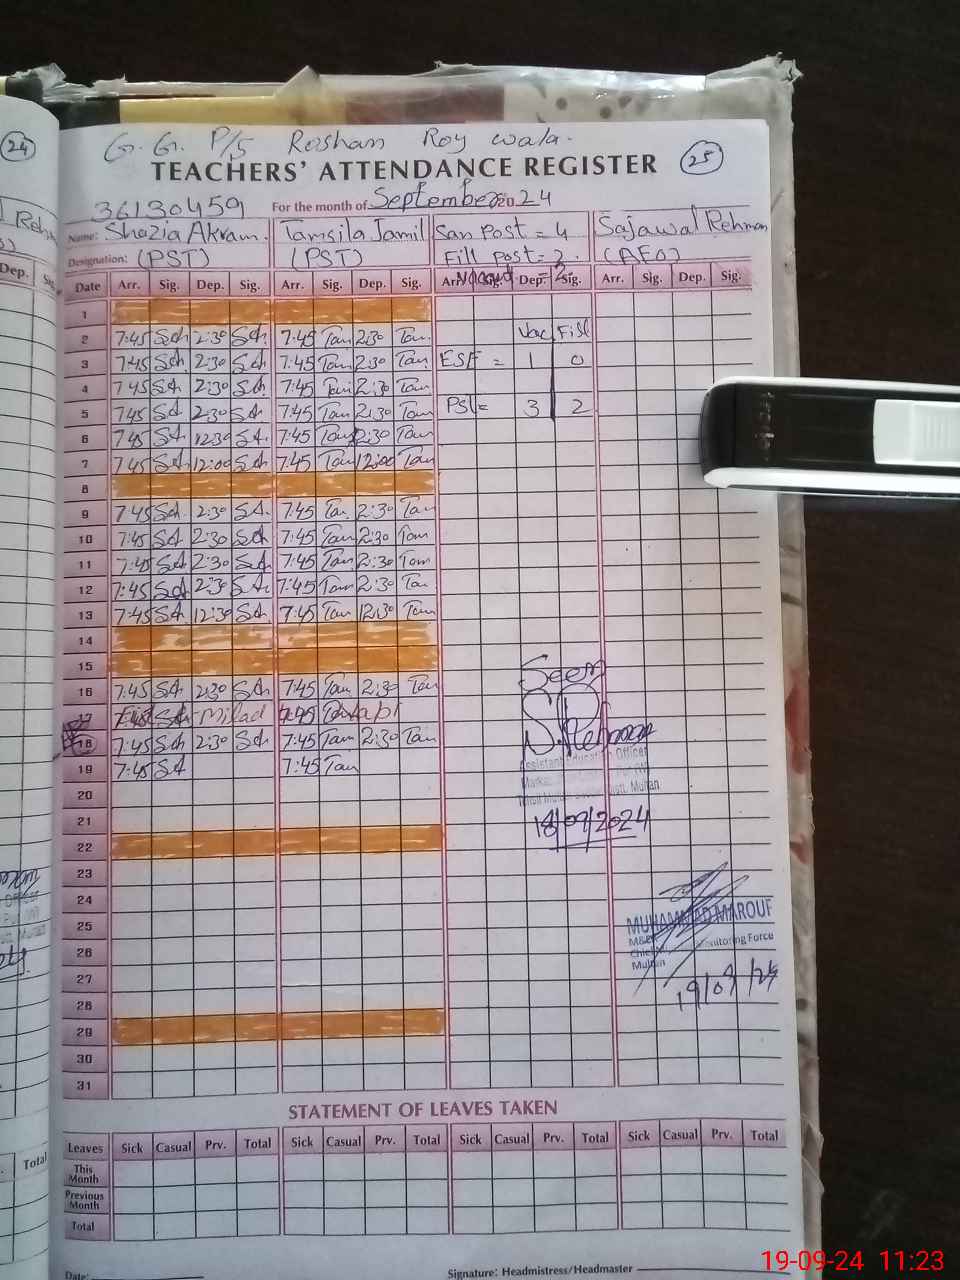 24
G. G. P/S Roshan Roy wala.
TEACHERS' ATTENDANCE REGISTER 25
36130459 For the month of September 2024
Name: Shazia Akram. Tamsila Jamil San Post = 4 Sajawal Rehman
Designation: (PST) (PST) Fill Post = 2. (AEO)
Vacant = 2.
Date Arr. Sig. Dep. Sig. Arr. Sig. Dep. Sig. Arr. Sig. Dep. Sig. Arr. Sig. Dep. Sig.
1
2 7:45 2:30 7:45 Tam 2:30 Tam Vac Fill
3 7:45 2:30 7:45 Tam 2:30 Tam ESE = 1 0
4 7:45 2:30 7:45 Tam 2:30 Tam
5 7:45 2:30 7:45 Tam 2:30 Tam PST = 3 2
6 7:45 12:30 7:45 Tam 12:30 Tam
7 7:45 12:00 7:45 Tam 12:00 Tam
8
9 7:45 2:30 7:45 Tam 2:30 Tam
10 7:45 2:30 7:45 Tam 2:30 Tam
11 7:45 2:30 7:45 Tam 2:30 Tam
12 7:45 2:30 7:45 Tam 2:30 Tam
13 7:45 12:30 7:45 Tam 12:30 Tam
14
15
16 7:45 2:30 7:45 Tam 2:30 Tam
17 Milad 7:45
18 7:45 2:30 7:45 Tam 2:30 Tam
19 7:45 7:45 Tam
20
21
22
23
24
25
26
27
28
29
30
31
Seen
S. Rehman
Assistant Education Officer
18/09/2024
MUHAMMAD MAROUF
Monitoring Force
Multan
19/09/24
STATEMENT OF LEAVES TAKEN
Leaves Sick Casual Prv. Total Sick Casual Prv. Total Sick Casual Prv. Total Sick Casual Prv. Total
This Month
Previous Month
Total
Date: Signature: Headmistress/Headmaster
19-09-24 11:23